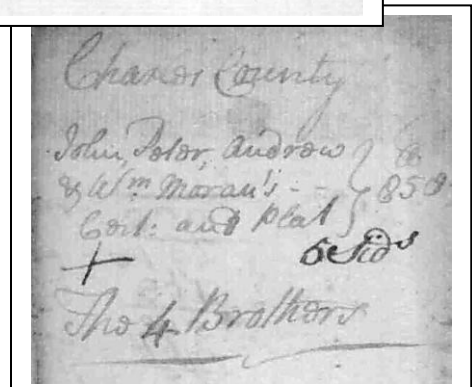 Charles County
John, Peter, Andrew } a
& Wm. Moran's - - } 850
Cert: and Plat }
6 Sids
The 4 Brothers